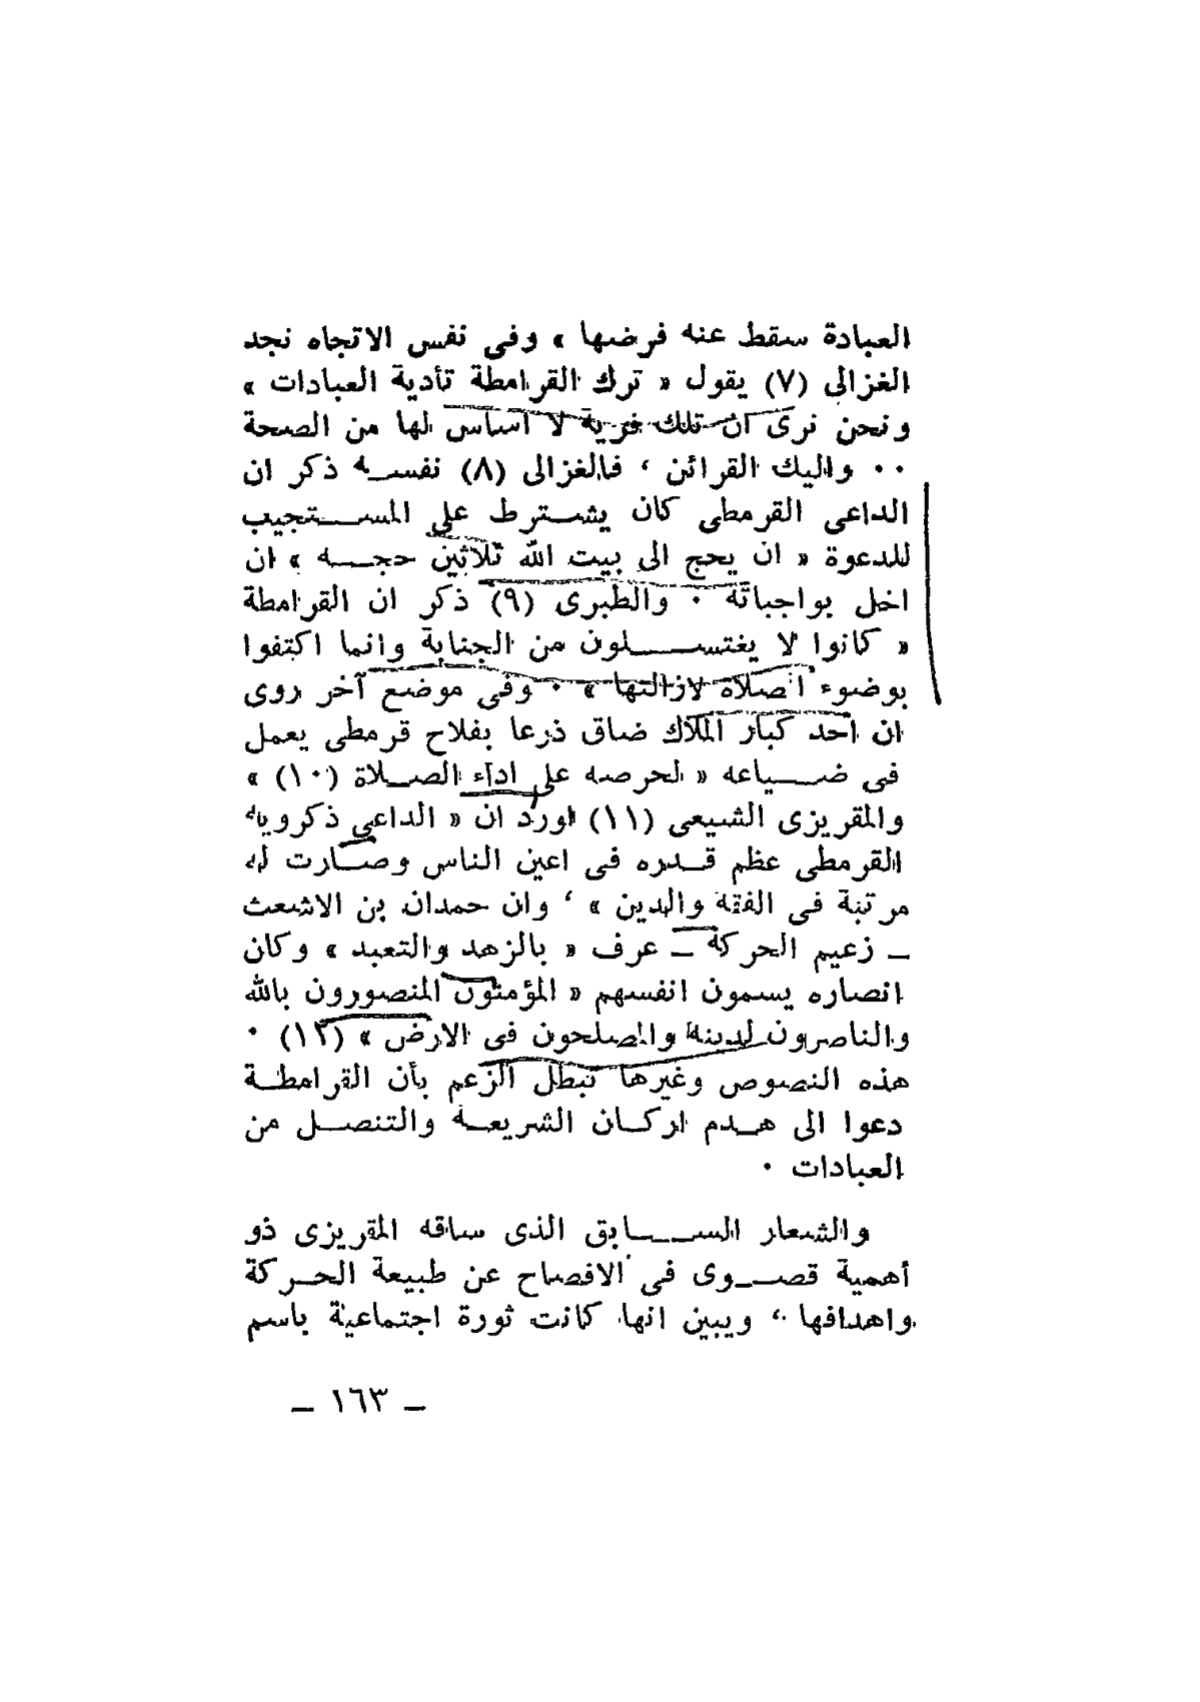 العبادة سقط عنه فرضها » وفى نفس الاتجاه نجد
الغزالى (٧) يقول « ترك القرامطة تأدية العبادات »
ونحن نرى ان تلك فرية لا اساس لها من الصحة
٠٠ واليك القرائن ، فالغزالى (٨) نفسه ذكر ان
الداعى القرمطى كان يشترط على المستجيب
للدعوة « ان يحج الى بيت الله ثلاثين حجه » ان
اخل بواجباته ٠ والطبرى (٩) ذكر ان القرامطة
« كانوا لا يغتسلون من الجنابة وانما اكتفوا
بوضوء الصلاة لازالتها » ٠ وفى موضع آخر روى
ان احد كبار الملاك ضاق ذرعا بفلاح قرمطى يعمل
فى ضياعه « لحرصه على اداء الصلاة (١٠) »
والمقريزى الشيعى (١١) اورد ان « الداعى ذكرويه
القرمطى عظم قدره فى اعين الناس وصارت له
مرتبة فى الفقه والدين » ، وان حمدان بن الاشعث
ـ زعيم الحركة ـ عرف « بالزهد والتعبد » وكان
انصاره يسمون انفسهم « المؤمنون المنصورون بالله
والناصرون لدينه والمصلحون فى الارض » (١٢) ٠
هذه النصوص وغيرها تبطل الزعم بأن القرامطة
دعوا الى هدم اركان الشريعة والتنصل من
العبادات ٠
والشعار السابق الذى ساقه المقريزى ذو
أهمية قصوى فى الافصاح عن طبيعة الحركة
واهدافها ، ويبين انها كانت ثورة اجتماعية باسم
ـ ١٦٣ ـ